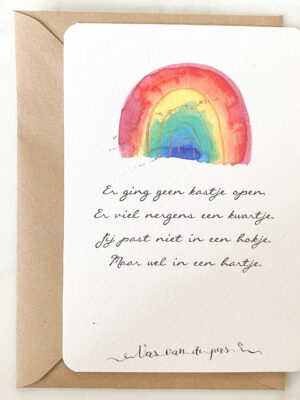 Er ging geen kastje open.
Er viel nergens een kwartje.
Jij past niet in een hokje.
Maar wel in een hartje.
Vers van de pers